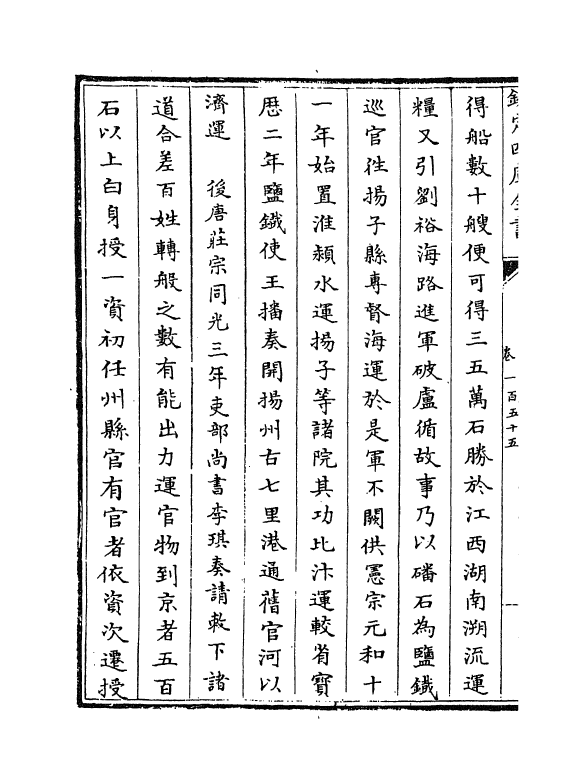 欽定四庫全書
卷一百五十五
得船數十艘便可得三五萬石勝於江西湖南溯流運
糧又引劉裕海路進軍破盧循故事乃以磻石為鹽鐵
巡官往揚子縣專督海運於是軍不闕供憲宗元和十
一年始置淮潁水運揚子等諸院其功比汴運較省寶
厯二年鹽鐵使王播奏開揚州古七里港通舊官河以
濟運　後唐莊宗同光三年吏部尚書李琪奏請敕下諸
道合差百姓轉般之數有能出力運官物到京者五百
石以上白身授一資初任州縣官有官者依資次遷授